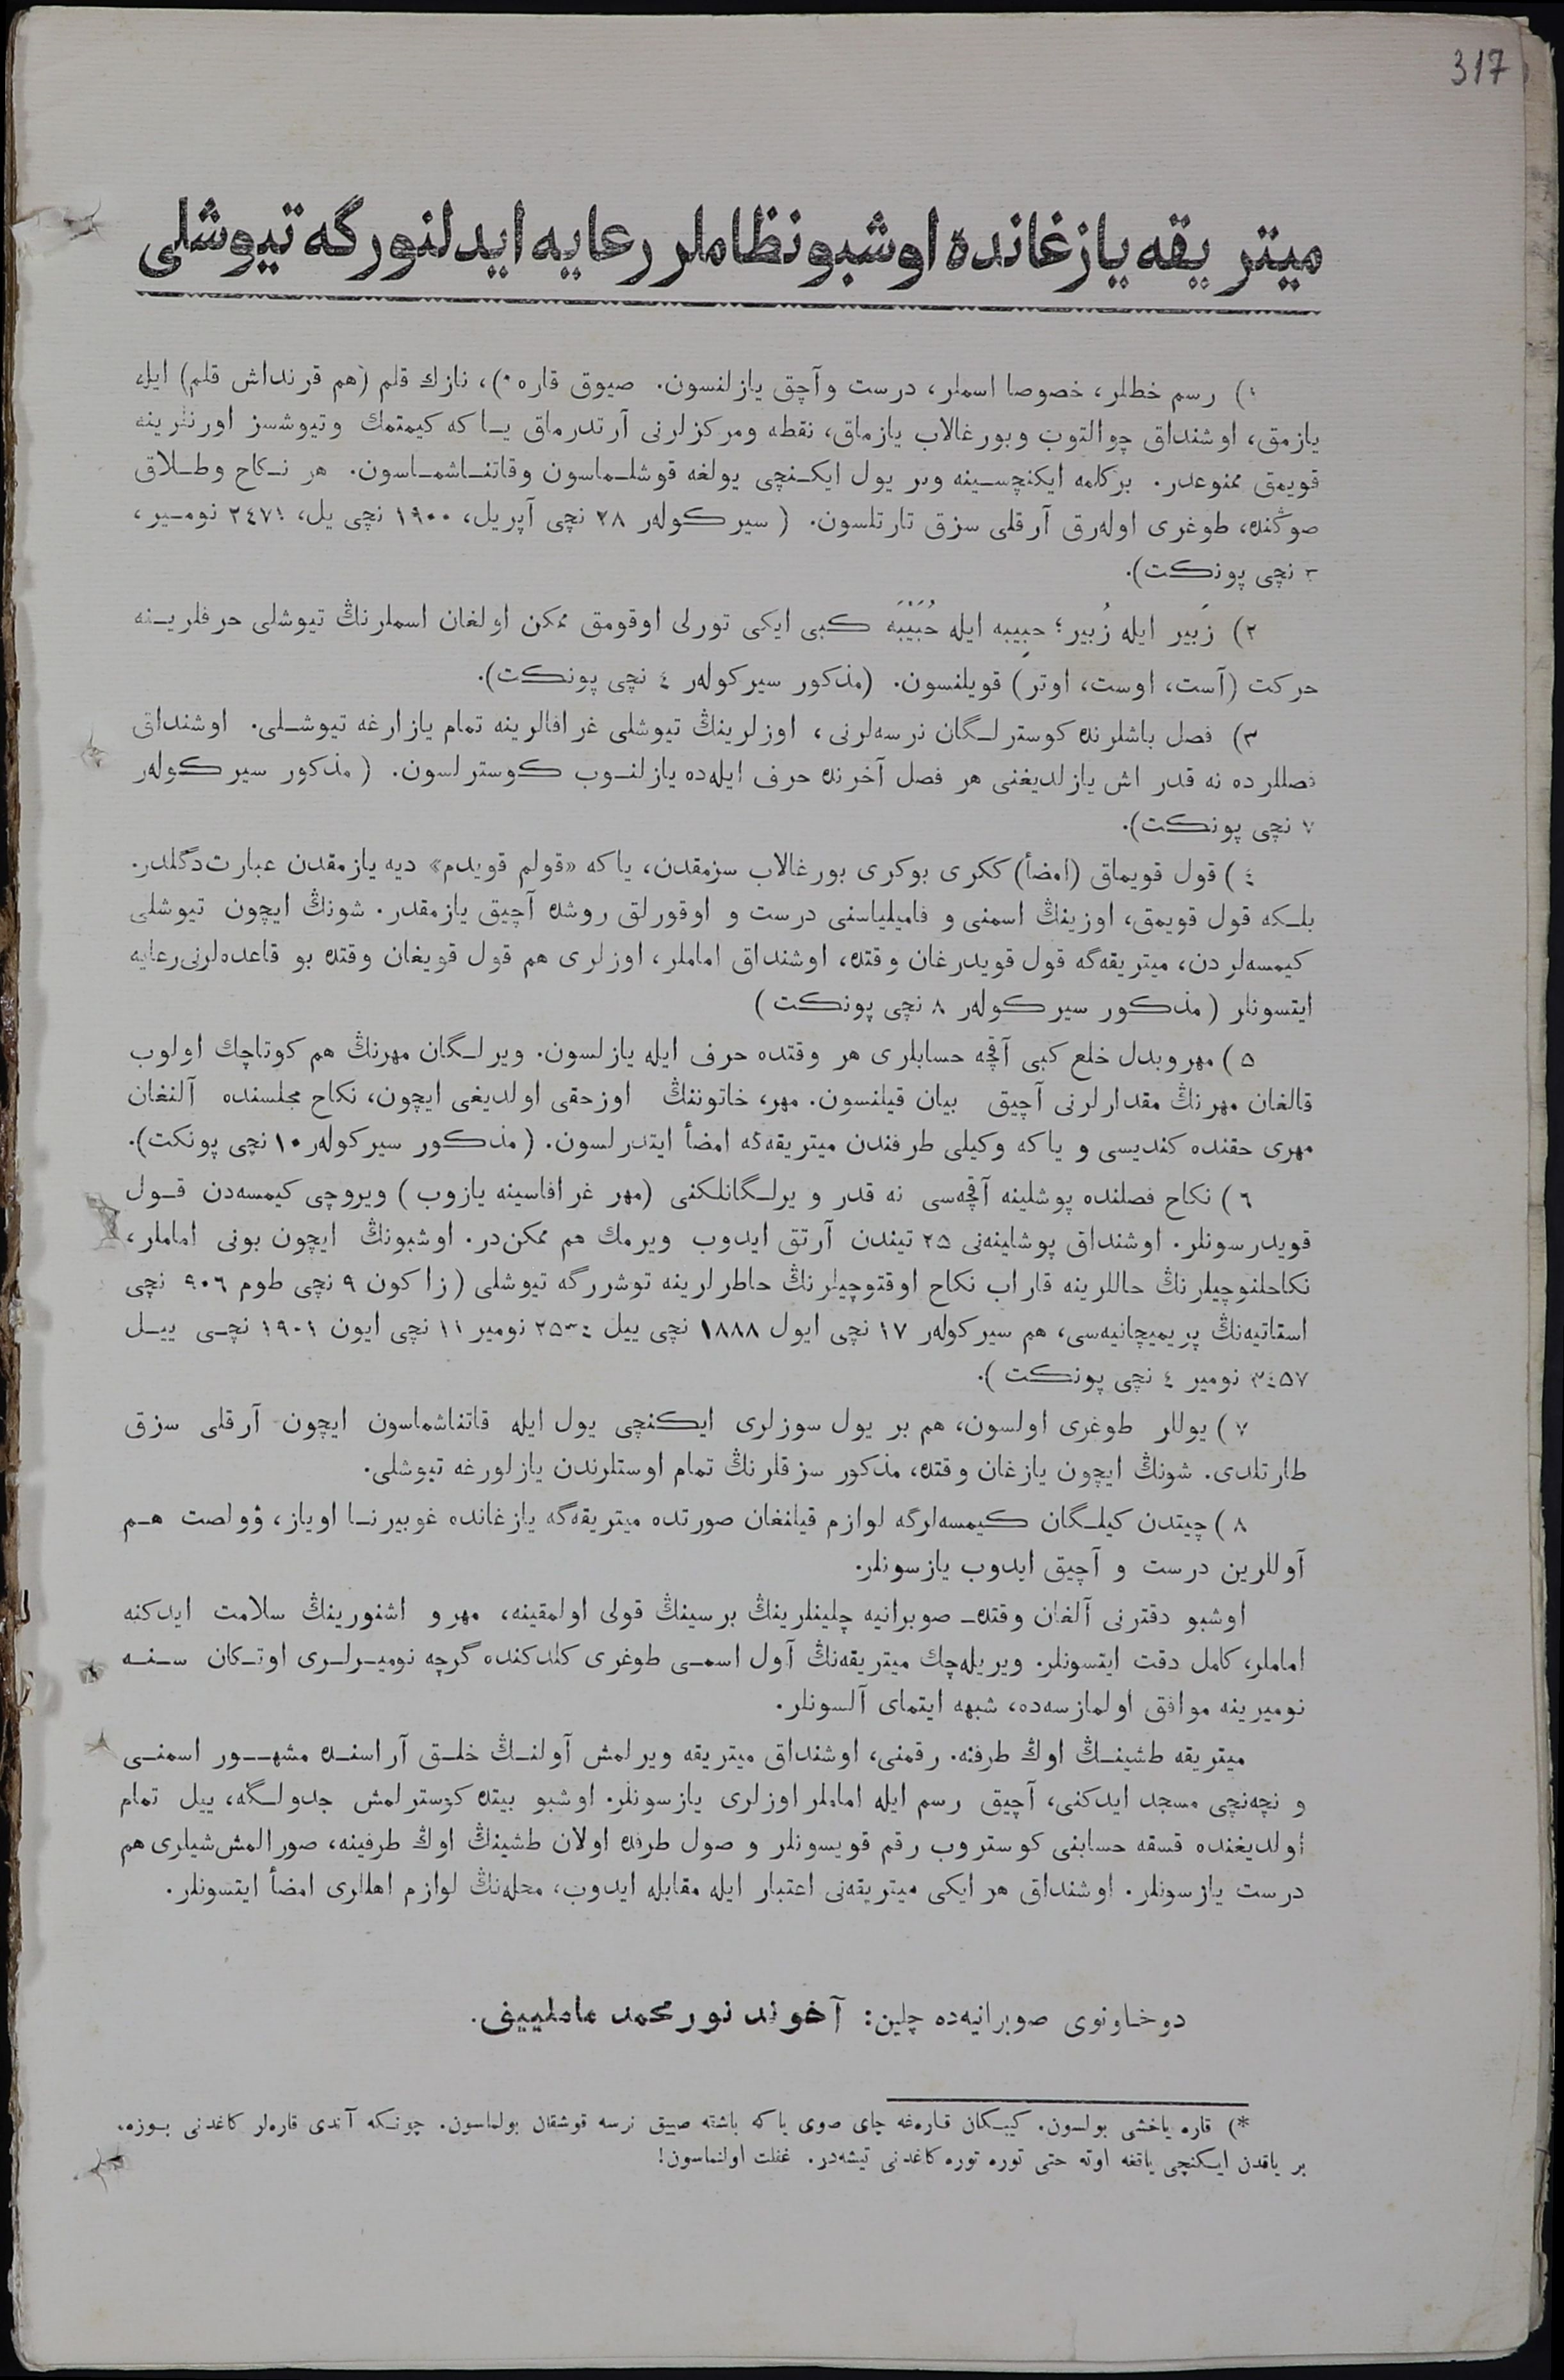 317
ميتريقه يازغانده اوشبو نظاملر رعايه ايدلنورگه تيوشلی
١) رسم خطلر، خصوصا اسملر، درست و آچق يازلنسون. صيوق قاره*)، نازك قلم (هم قرنداش قلم) ايله
يازمق، اوشنداق چوالتوب و بورغالاب يازماق، نقطه و مركزلرنی آرتدرماق يــا كه كيمتمك و تيوشسز اورنلرينه
قويمق ممنوعدر. بركلمه ايكنچســينه وبر يول ايكــنچی يولغه قوشلــماسون وقاتنــاشمــاسون. هر نــكاح وطــلاق
صوڭنده، طوغری اوله‌رق آرقلی سزق تارتلسون. (سيركولەر ٢٨ نچی آپريل، ١٩٠٠ نچی يل، ٢٤٧١ نومــير،
٣ نچی پونكت).
٢) زَبير ايله زُبير؛ حبِيبه ايله حُبَيْبَه كبی ايكی تورلی اوقومق ممكن اولغان اسملرنڭ تيوشلی حرفلريــنه
حركت (آست، اوست، اوتر) قويلنسون. (مذكور سيركولەر ٤ نچی پونكت).
٣) فصل باشلرنده كوسترلــگان نرسه‌لرنی، اوزلرينڭ تيوشلی غرافالرينه تمام يازارغه تيوشــلی. اوشنداق
فصللرده نه قدر اش يازلديغنی هر فصل آخرنده حرف ايله‌ده يازلنــوب كوسترلسون. (مذكور سيركولەر
٧ نچی پونكت).
٤) قول قويماق (امضأ) ككری بوكری بورغالاب سزمقدن، ياكه «قولم قويدم» ديه يازمقدن عبارت دگلدر.
بلــكه قول قويمق، اوزينڭ اسمنی و فاميلياسنی درست و اوقورلق روشده آچيق يازمقدر. شونڭ ايچون تيوشلی
كيمسه‌لردن، ميتريقه‌گه قول قويدرغان وقتده، اوشنداق اماملر، اوزلری هم قول قويغان وقتده بو قاعده‌لرنی رعايه
ايتسونلر (مذكور سيركولەر ٨ نچی پونكت)
۵) مهر وبدل خلع كبی آقچه حسابلری هر وقتده حرف ايله يازلسون. ويرلــگان مهرنڭ هم كوتاچك اولوب
قالغان مهرنڭ مقدارلرنی آچيق بيان قيلنسون. مهر، خاتوننڭ اوزحقی اولديغی ايچون، نكاح مجلسنده آلنغان
مهری حقنده كنديسی و ياكه وكيلی طرفندن ميتريقه‌گه امضأ ايتدرلسون. (مذكور سيركولەر ١٠ نچی پونكت).
٦) نكاح فصلنده پوشلينه آقچه‌سی نه قدر و يرلــگانلكنی (مهر غرافاسينه يازوب) ويروچی كيمسه‌دن قــول
قويدرسونلر. اوشنداق پوشلينه‌نی ٢۵ تيندن آرتق ايدوب ويرمك هم ممكن‌در. اوشبونڭ ايچون بونی اماملر،
نكاحلنوچيلرنڭ حاللرينه قاراب نكاح اوقتوچيلرنڭ خاطرلرينه توشررگه تيوشلی (زاكون ٩ نچی طوم ٩٠٦ نچی
استاتيه‌نڭ پريميچانيه‌سی، هم سيركولەر ١٧ نچی ايول ١٨٨٨ نچی ييل ٢۵٣٤ نومير ١١ نچی ايون ١٩٠١ نچــی ييــل
٣٤۵٧ نومير ٤ نچی پونكت).
٧) يوللر طوغری اولسون، هم بر يول سوزلری ايكنچی يول ايله قاتناشماسون ايچون آرقلی سزق
طارتلدی. شونڭ ايچون يازغان وقتده، مذكور سزقلرنڭ تمام اوستلرندن يازلورغه تيوشلی.
٨) چيتدن كيلــگان كيمسه‌لرگه لوازم قيلنغان صورتده ميتريقه‌گه يازغانده غوبيرنــا اوياز، ؤولصت هــم
آوللرين درست و آچيق ايدوب يازسونلر.
اوشبو دفترنی آلغان وقتده صوبرانيه چلينلرينڭ برسينڭ قولی اولمقينه، مهر و اشنورينڭ سلامت ايدكنه
اماملر، كامل دقت ايتسونلر. ويريله‌چك ميتريقه‌نڭ آول اسمــی طوغری كلدكنده گرچه نوميــرلــری اوتــكان ســنــه
نوميرينه موافق اولمازسه‌ده، شبهه ايتمای آلسونلر.
ميتريقه طشينــڭ اوڭ طرفنه. رقمنی، اوشنداق ميتريقه ويرلمش آولنــڭ خلــق آراسنــده مشهــور اسمنــی
و نچه‌نچی مسجد ايدكنی، آچيق رسم ايله اماملر اوزلری يازسونلر. اوشبو بيتده كوسترلمش جدولــگه، ييل تمام
اولديغنده قسقه حسابنی كوستروب رقم قويسونلر و صول طرفده اولان طشينڭ اوڭ طرفينه، صورالمش شيلری هم
درست يازسونلر. اوشنداق هر ايكی ميتريقه‌نی اعتبار ايله مقابله ايدوب، محله‌نڭ لوازم اهاللری امضأ ايتسونلر.
دوخاونوی صوبرانيه‌ده چلين: آخوند نورمحمد مامليييف.
*) قاره ياخشی بولسون. كيبــكان قاره‌غه چای صوی ياكه باشته صييق نرسه قوشقان بولماسون. چونــكه آندی قاره‌لر كاغدنی بــوزه.
بر ياقدن ايكنچی ياقغه اوته حتی توره توره كاغدنی تيشه‌در. غفلت اولنماسون!